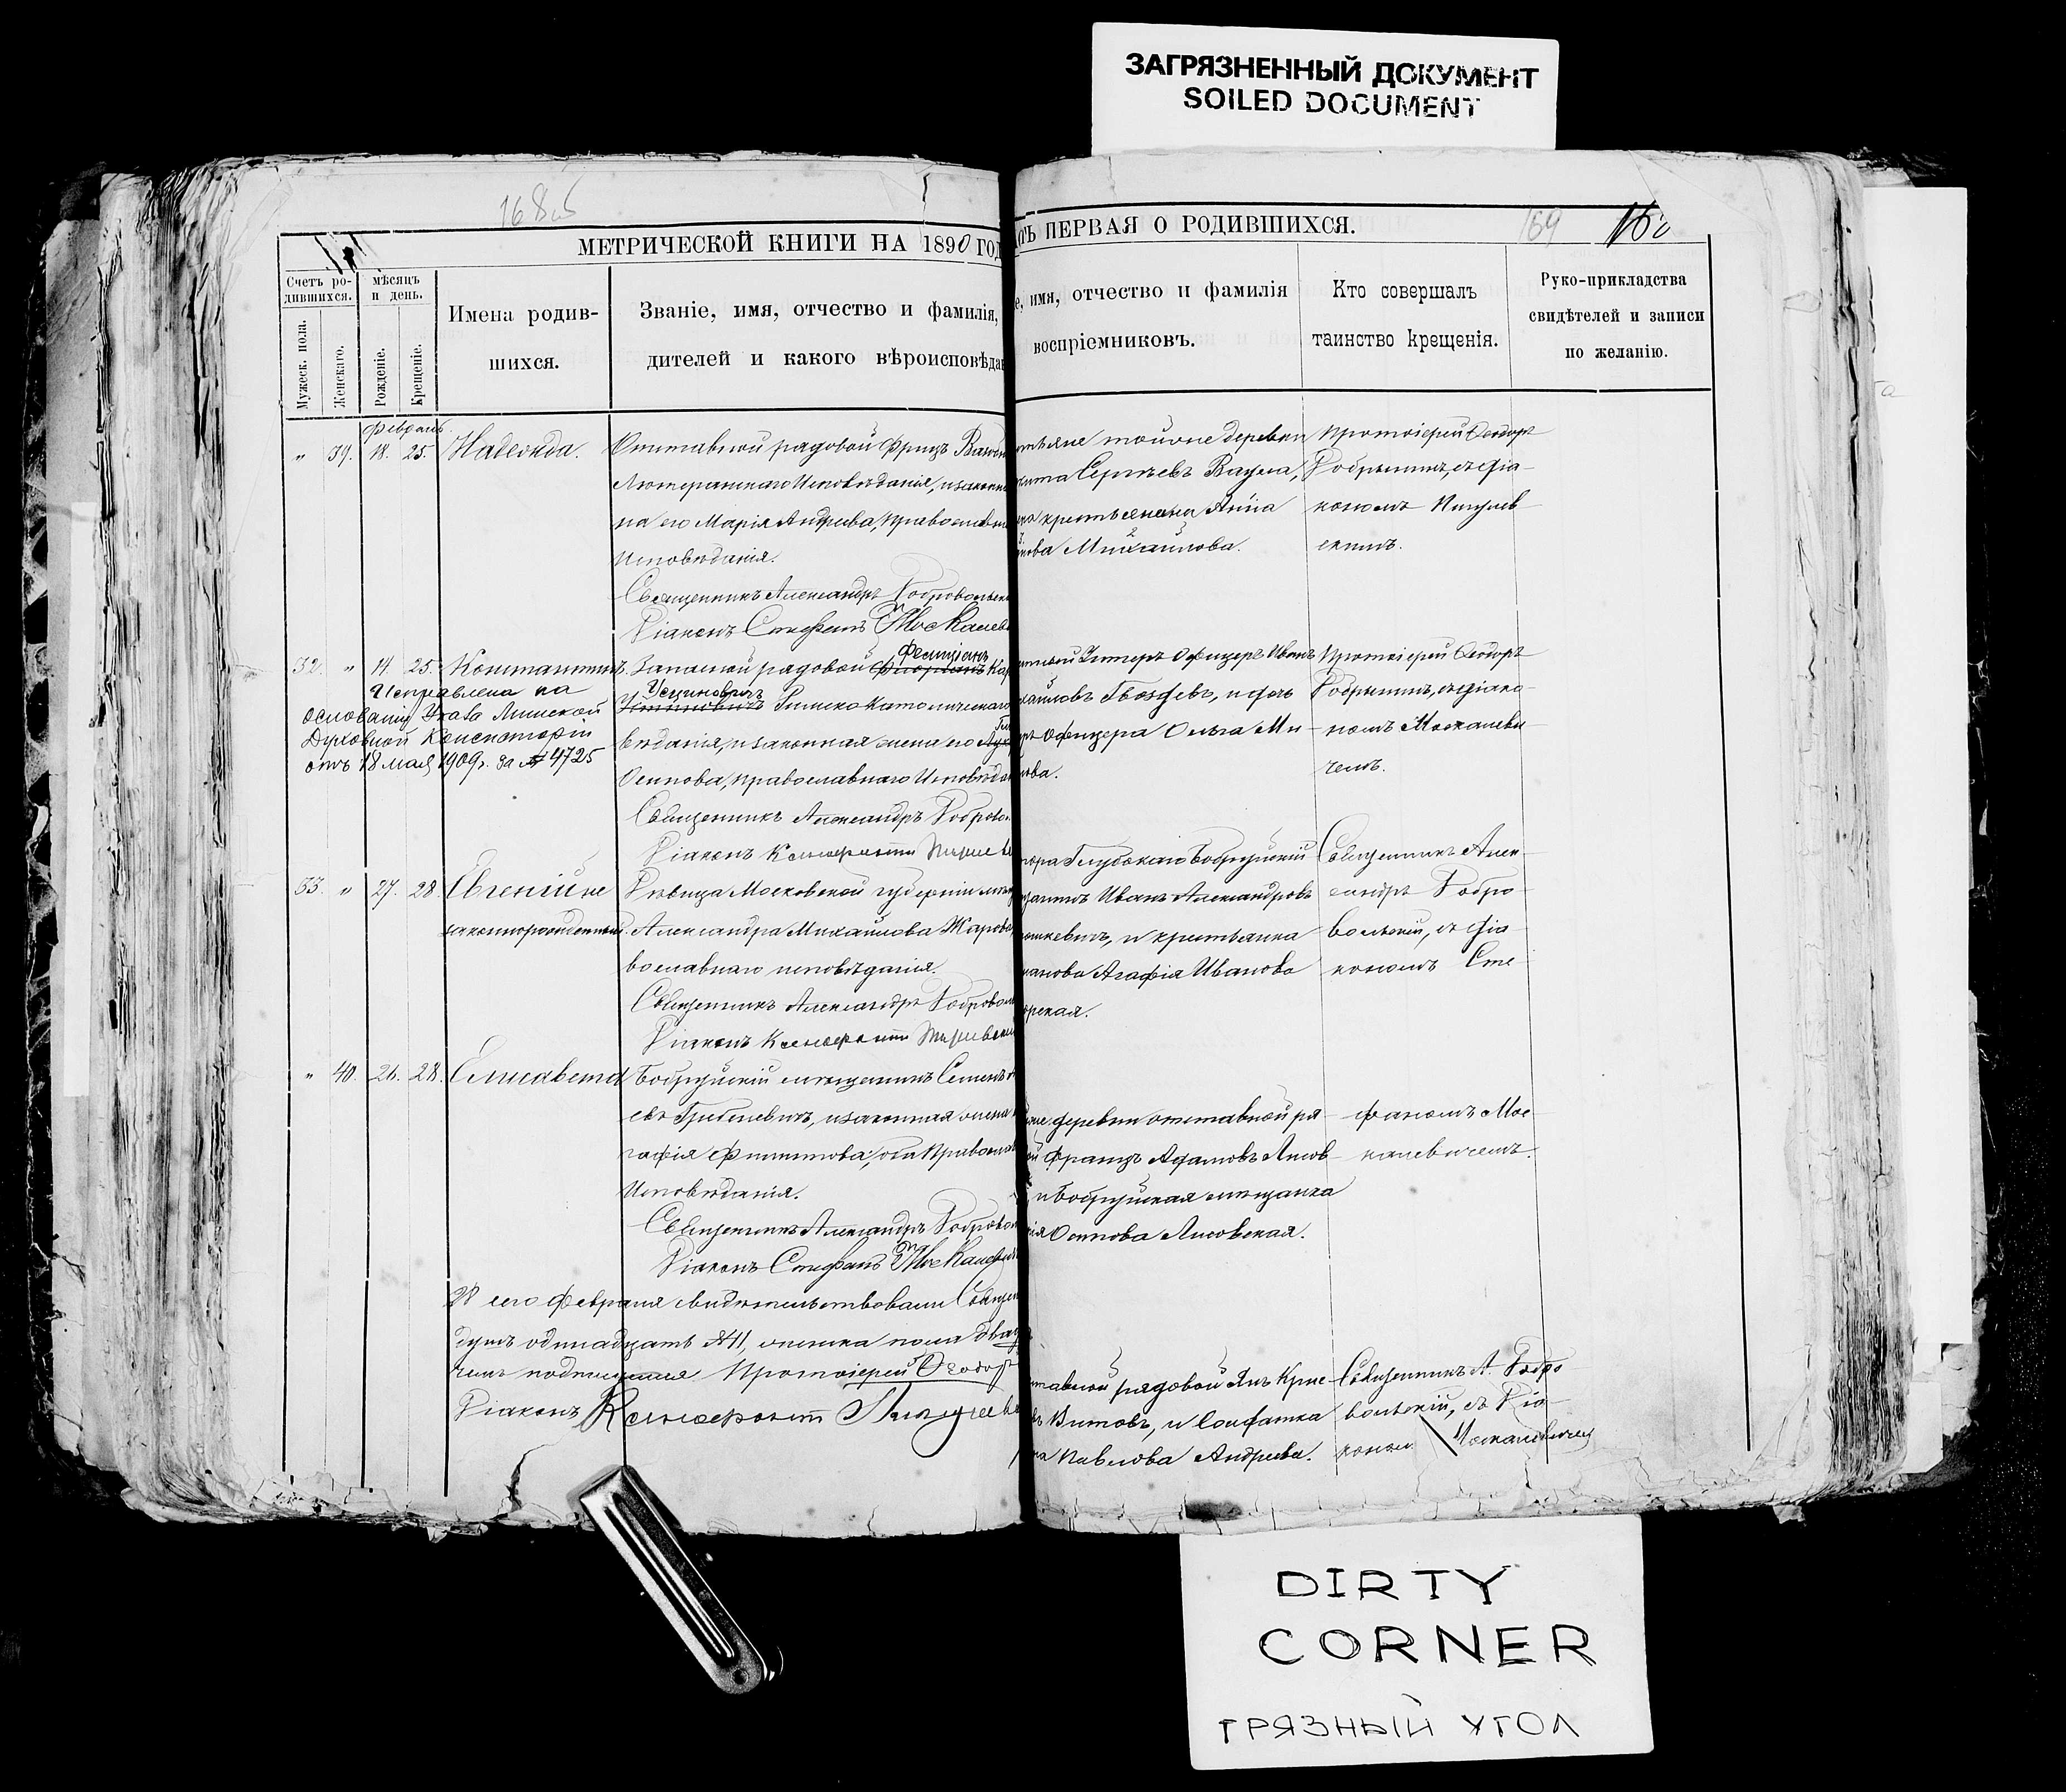 ЗАГРЯЗНЕННЫЙ ДОКУМЕНТ
SOILED DOCUMENT
168об
МЕТРИЧЕСКОЙ КНИГИ НА 1890 ГОД
Счетъ ро-
дившихся.
Мужеск. пола.
Женскаго.
мѣсяцъ
и день.
Рожденіе.
Крещеніе.
Имена родив-
шихся.
Званіе, имя, отчество и фамилія,
дителей и какого вѣроисповѣда
Февраль.
" 39. 18. 25. Надежда. Отставной рядовой Фрицъ
Лютеранскаго Исповѣданія, и законн
на его Марія Андреева, Православн
Исповѣданія.
Священникъ Александръ Добровольск
Діаконъ Стефанъ Москалев
Фелиціанъ
32. " 14. 25. Константинъ. Запасной рядовой Флоріанъ Кар
Исправлена на
основаніи Указа Минской
Духовной Консисторіи
отъ 18 мая 1909 г. за № 4725
Устиновичъ
Устиновичъ Римско католическаго
вѣданія, и законная жена его
Осипова, православнаго Исповѣда
Священникъ Александръ Добров
Діаконъ Ксенофонтъ
33. " 27. 28. Евгеній не
законнорожденный. Дѣвица Московской губерніи
Александра Михайлова Жарова
вославнаго исповѣданія.
Священникъ Александръ Добровол
Діаконъ Ксенофонтъ
" 40. 26. 28. Елисавета Бобруйскій мѣщанинъ Семенъ
евъ Гребневичъ, и законная жена
гафія Филиппова, оба Православ
Исповѣданія.
Священникъ Александръ Добровол
Діаконъ Стефанъ Москалев
28 сего февраля свидѣтельствовали Священ
душъ одинадцать №11, женска пола два
чемъ подписался Протоіерей Ѳеодоръ
Діаконъ Ксенофонтъ
ТЬ ПЕРВАЯ О РОДИВШИХСЯ.
169
е, имя, отчество и фамилія
воспріемниковъ.
Кто совершалъ
таинство крещенія.
Руко-прикладства
свидѣтелей и записи
по желанію.
стьяне тойоже деревни
кита Сергѣевъ Ваула,
крестьянка Анна
нова Михайлова.
Протоіерей Ѳеодоръ
Добрынинъ, съ діа-
кономъ
скимъ.
Унтеръ Офицеръ Иванъ
хайловъ Гвоздевъ, и дочь
Офицера Ольга Ми-
лова.
Протоіерей Ѳеодоръ
Добрынинъ, съ діако-
номъ Москалеви-
чемъ.
Глубокаго Бобруйскій
щанинъ Иванъ Александровъ
шкевичъ, и крестьянка
манова Агафія Иванова
рская.
Священникъ Алек-
сандръ Добро-
вольскій, съ діа-
кономъ Сте-
деревни отставной ря-
Францъ Адамовъ Лисов-
и Бобруйская мѣщанка
Осипова Лисовская.
фаномъ Мос-
калевичемъ.
ставной рядовой Янъ Крис-
Витовъ, и Солдатка
Павлова Андреева.
Священникъ А. Добро-
вольскій, съ Діа-
кономъ Москалевичемъ
DIRTY
CORNER
ГРЯЗНЫЙ УГОЛ